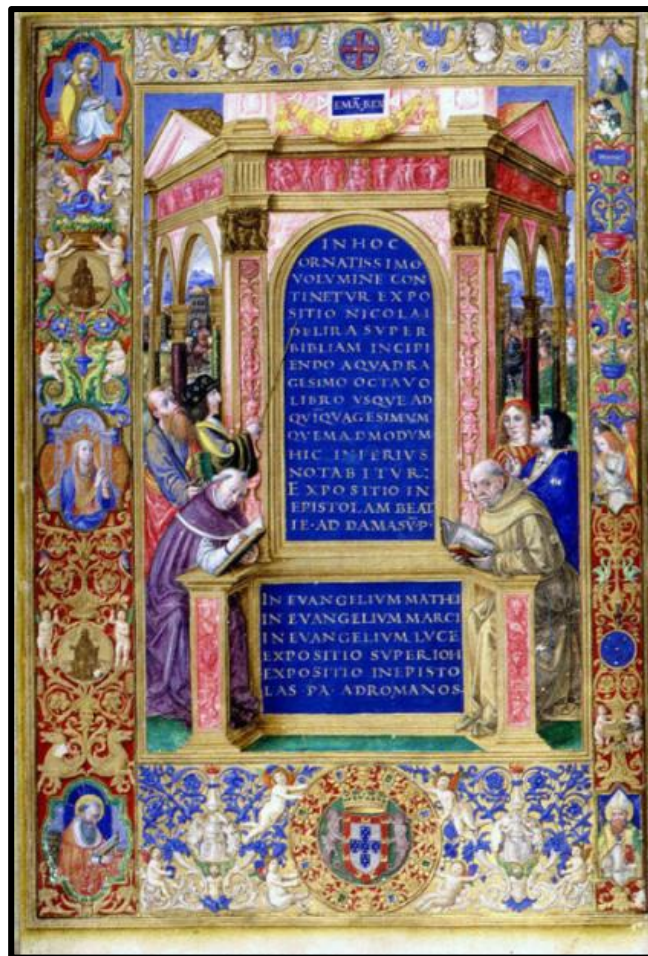 EMÃ·REX
IN HOC
ORNATISSIMO
VOLVMINE CON
TINETVR EXPO
SITIO NICOLAI
DELIRA SVPER
BIBLIAM INCIPI
ENDO AQVADRA
GESIMO OCTAVO
LIBRO VSQVE AD
QVIQVAGESIMVM
QVEMADMODVM
HIC INFERIVS
NOTABITVR:
EXPOSITIO IN
EPISTOLAM BEAT
IE·AD DAMASV̄·P·
IN EVANGELIVM MATHEI
IN EVANGELIVM MARCI
IN EVANGELIVM LVCE
EXPOSITIO SVPER IOH
EXPOSITIO INEPISTO
LAS PA·ADROMANOS·